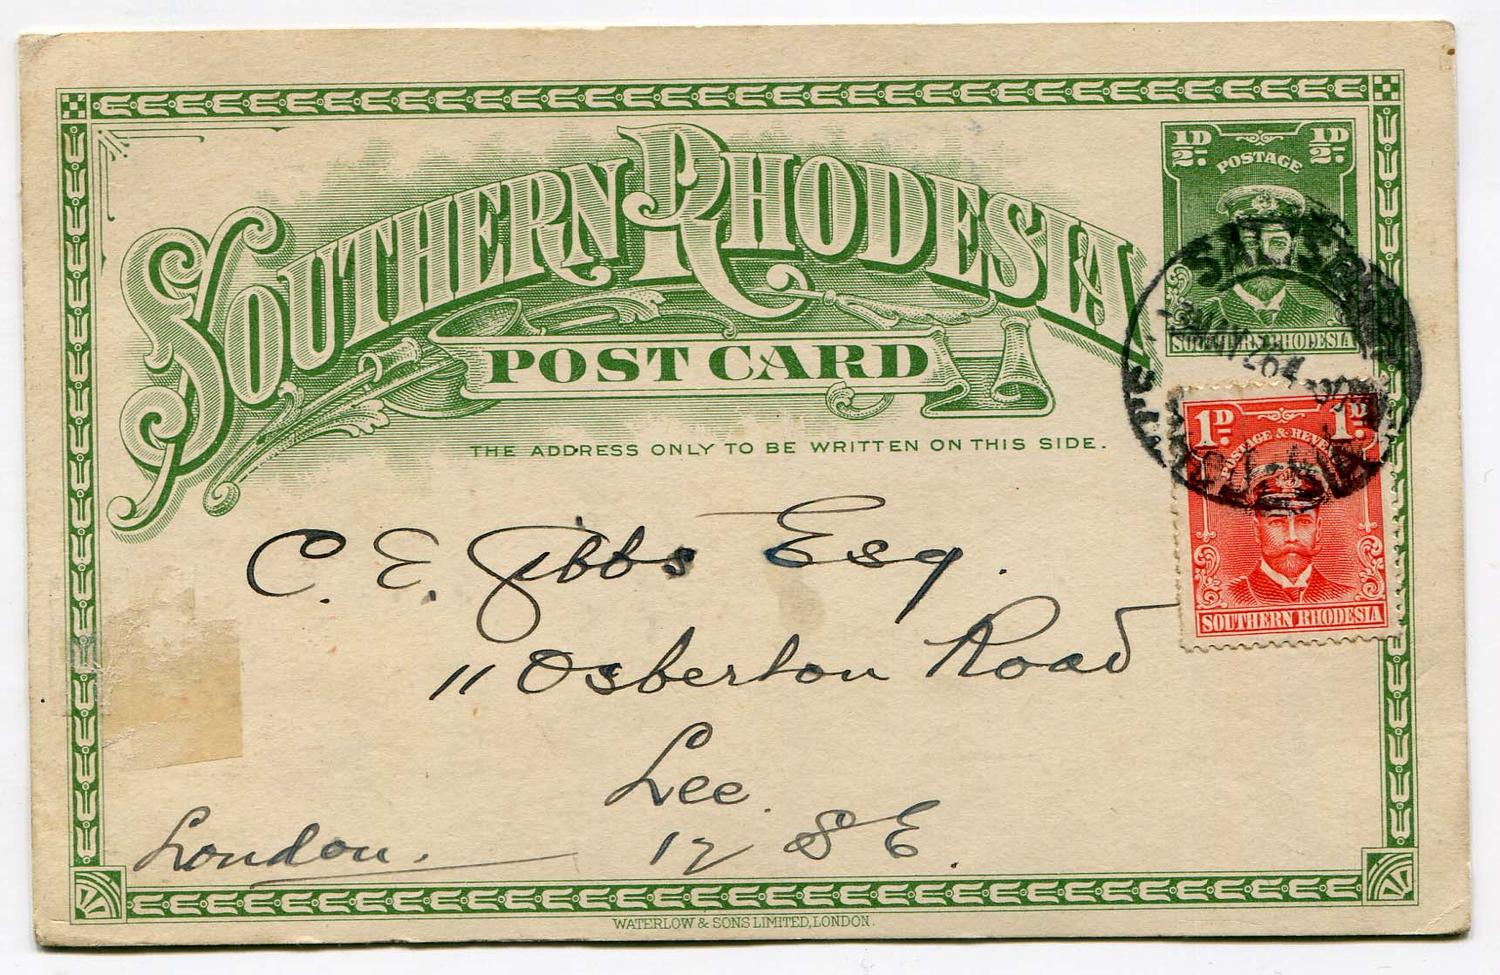 SOUTHERN RHODESIA
½D. ½D.
POSTAGE
SOUTHERN RHODESIA
POST CARD
THE ADDRESS ONLY TO BE WRITTEN ON THIS SIDE.
SALISBURY
MAY 26 4-00
1D. 1D.
POSTAGE & REVENUE
SOUTHERN RHODESIA
C. E. Gibbs Esq.
11 Osberton Road
Lee.
London. 12 S E.
WATERLOW & SONS LIMITED, LONDON.